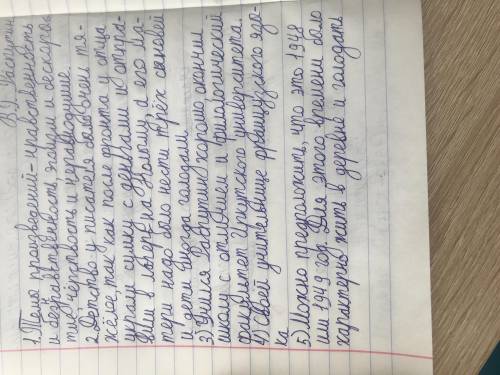 В.Г. Распутин
1. Тема произведений - нравственность
и безнравственность, эгоизм и бескорыс-
тие, чёрствость и неравнодушие
2. Детство у писателя было очень тя-
жёлое, так как после фронта у отца
украли сумку с деньгами и отпра-
вили в лагерь на Колыму, а его ма-
тери надо было нести трёх сыновей
и дети иногда голодали.
3) Учился Распутин хорошо, окончил
школу с отличием и филологический
факультет Иркутского университета.
4) Своей учительнице французского язы-
ка
5) Можно предположить, что это 1948
или 1949 год. Для этого времени было
характерно жить в деревне и голодать